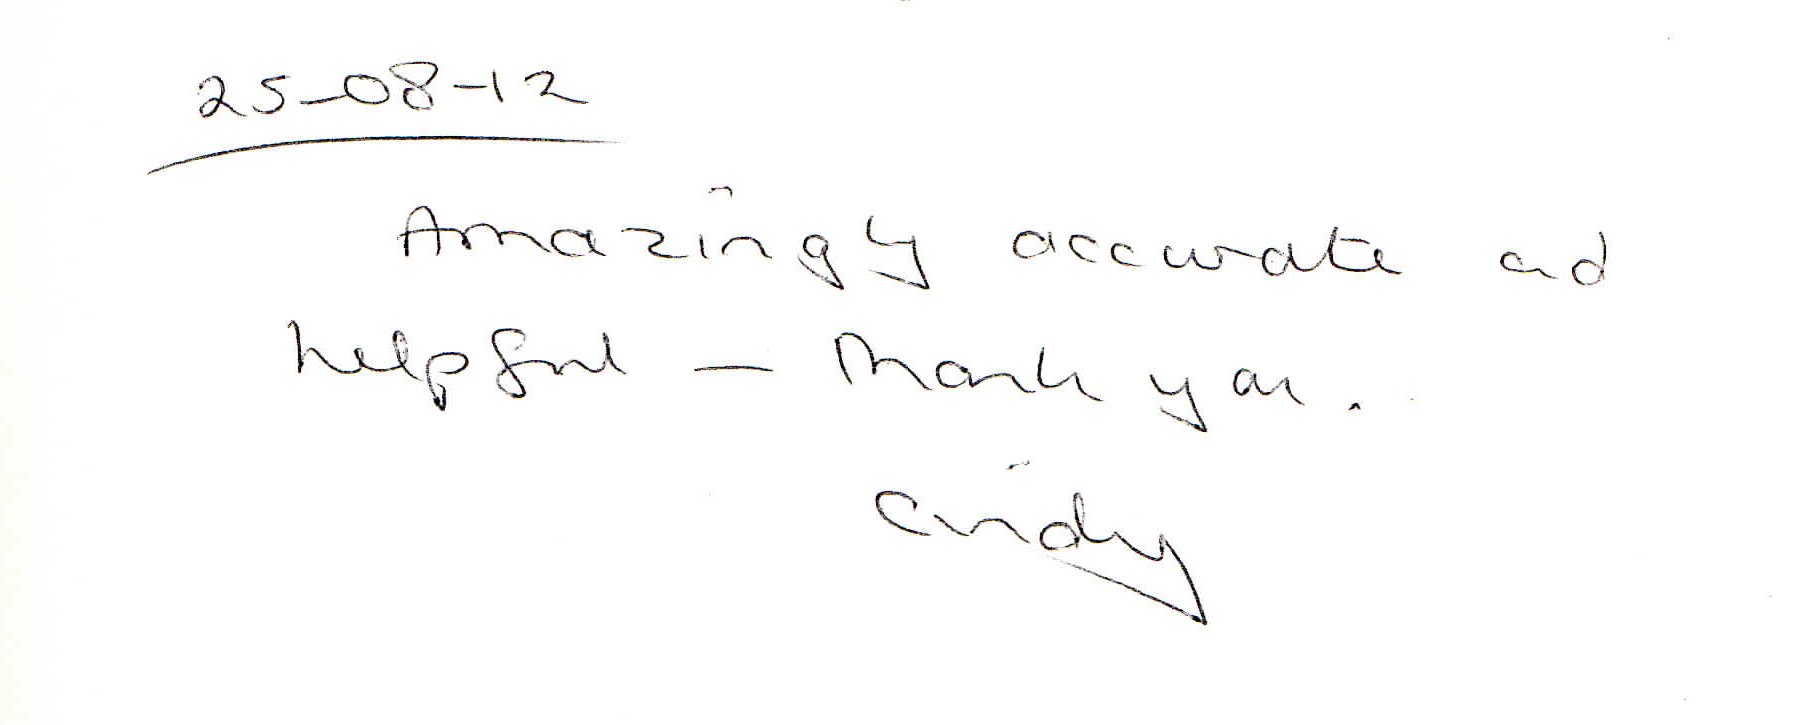 25-08-12
Amazingly accurate and
helpful - Thank you.
Cindy